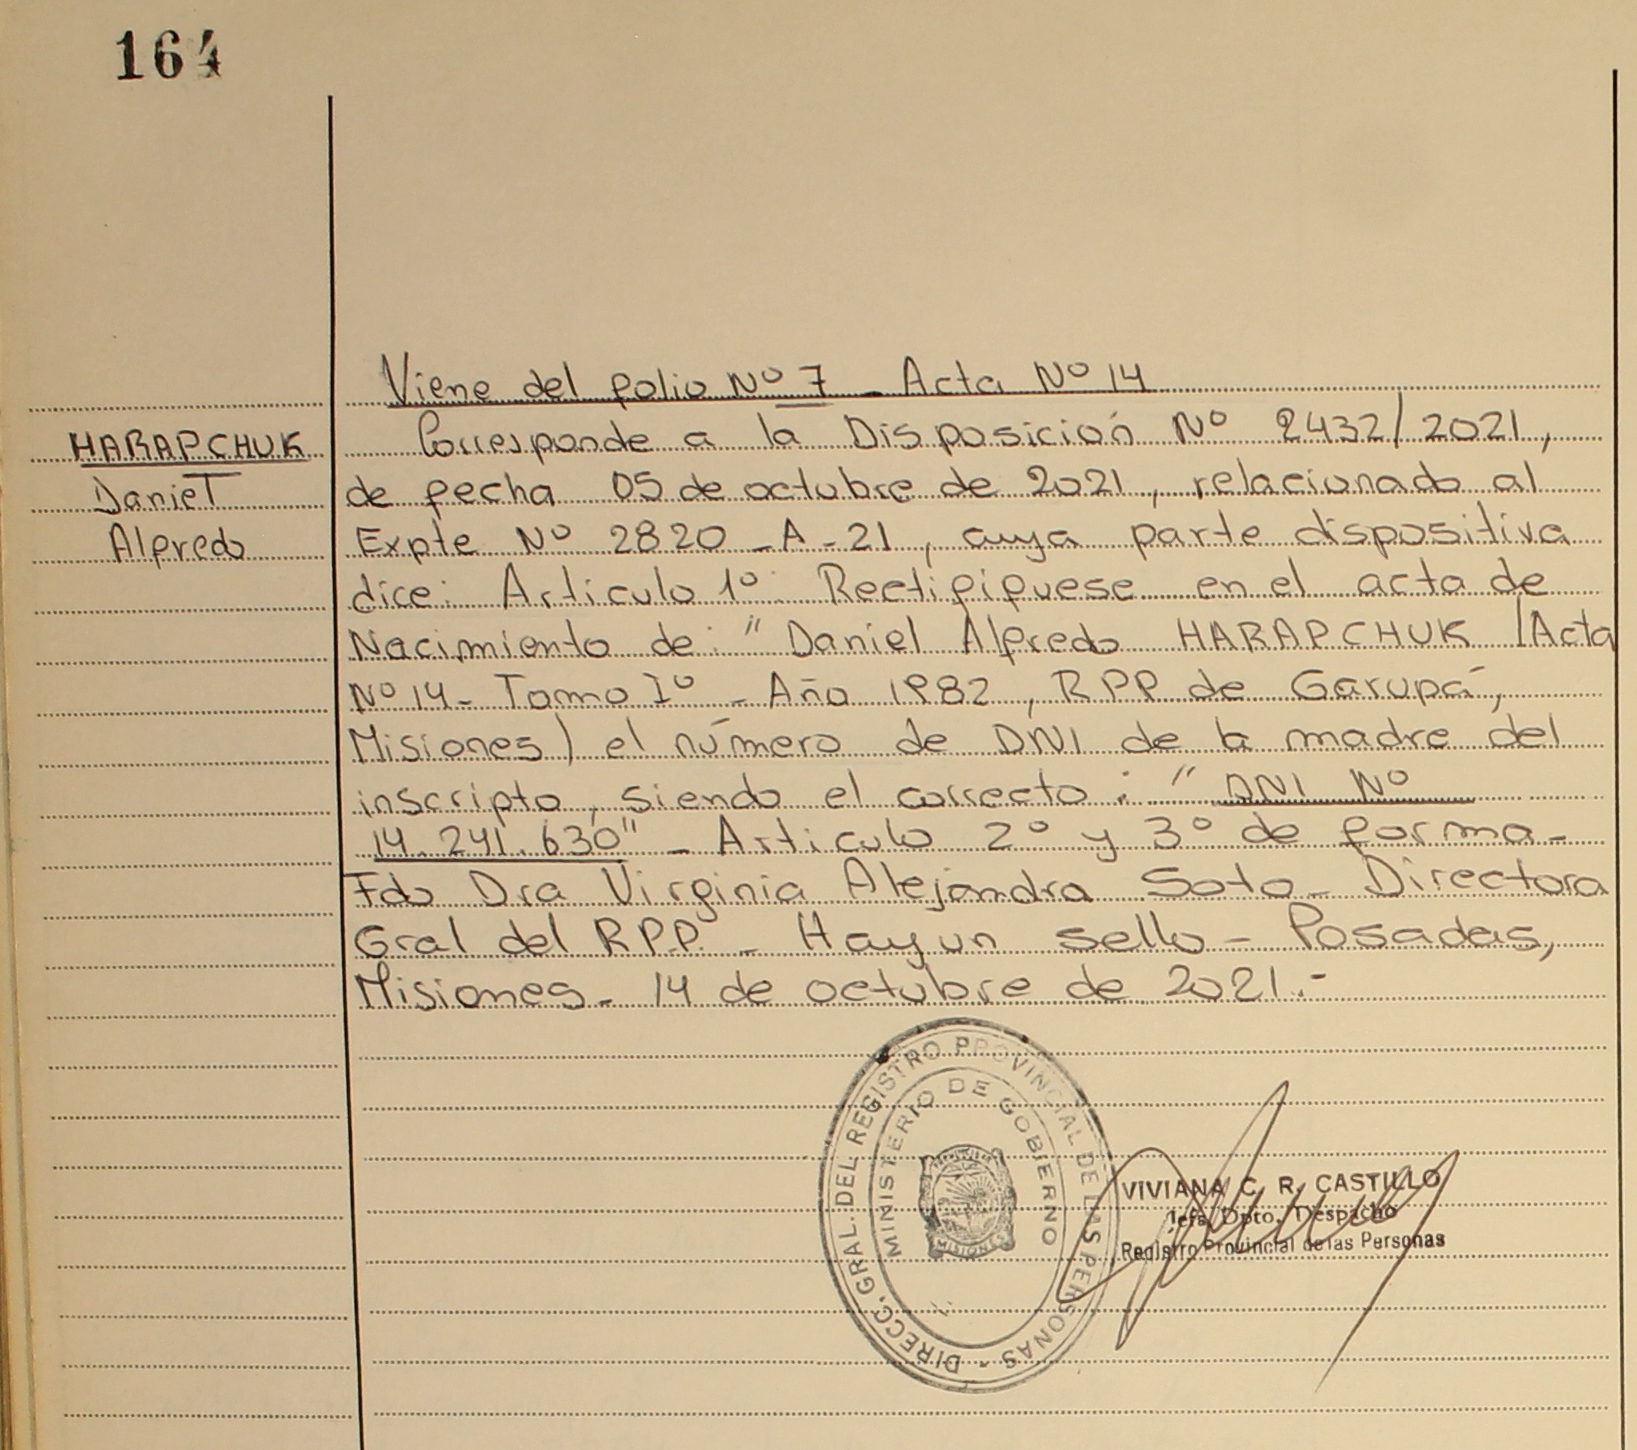 164
Viene del folio Nº 7 - Acta Nº 14
HARAPCHUK
Daniel
Alfredo
Corresponde a la Disposición Nº 2432/2021,
de fecha 05 de octubre de 2021, relacionado al
Expte Nº 2820-A-21, cuya parte dispositiva
dice: Articulo 1º: Rectifiquese en el acta de
Nacimiento de: "Daniel Alfredo HARAPCHUK (Acta
Nº 14- Tomo Iº - Año 1982, RPP de Garupá,
Misiones) el número de DNI de la madre del
inscripto, siendo el correcto: "DNI Nº
14.241.630" - Articulo 2º y 3º de forma-
Fdo Dra Virginia Alejandra Soto- Directora
Gral del R.P.P. - Hay un sello - Posadas,
Misiones- 14 de octubre de 2021.-
DIRECC. GRAL. DEL REGISTRO PROVINCIAL DE LAS PERSONAS -
MINISTERIO DE GOBIERNO
MISIONES
VIVIANA C. R. CASTILLO
Jefa Dpto. Despacho
Registro Provincial de las Personas